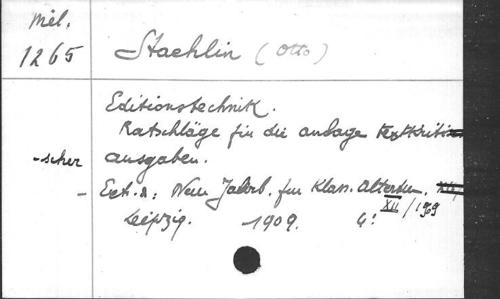 Mél.
1265
Staehlin (Otto)
Editionstechnik.
Ratschläge für die anlage textkriti
-scher ausgaben.
- Ext. d: Neue Jahrb. für Klass. Altertum.
XII / 1909
Leipzig. 1909. 4: